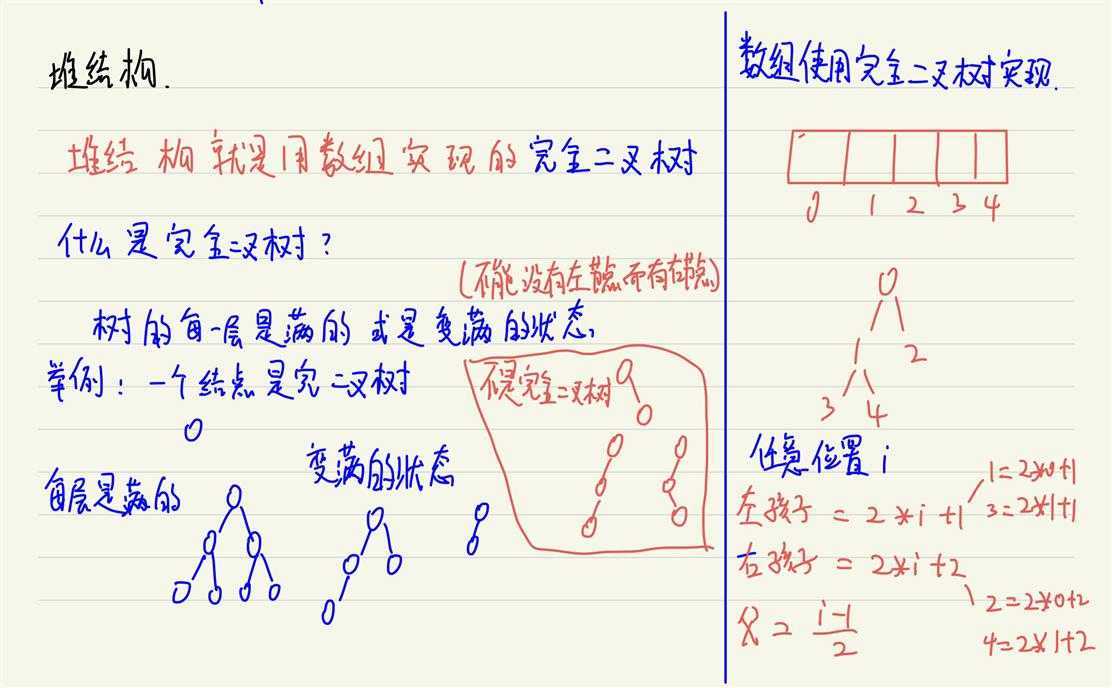 堆结构.
堆结构就是用数组实现的完全二叉树
什么是完全二叉树?
(不能没有左节点而有右节点)
树的每一层是满的或是变满的状态,
举例: 一个结点是完二叉树
不是完全二叉树
每层是满的
变满的状态
数组使用完全二叉树实现.
0 1 2 3 4
0
1 2
3 4
任意位置i
左孩子 = 2*i+1
1=2*0+1
3=2*1+1
右孩子 = 2*i+2
2=2*0+2
4=2*1+2
父 = i-1/2